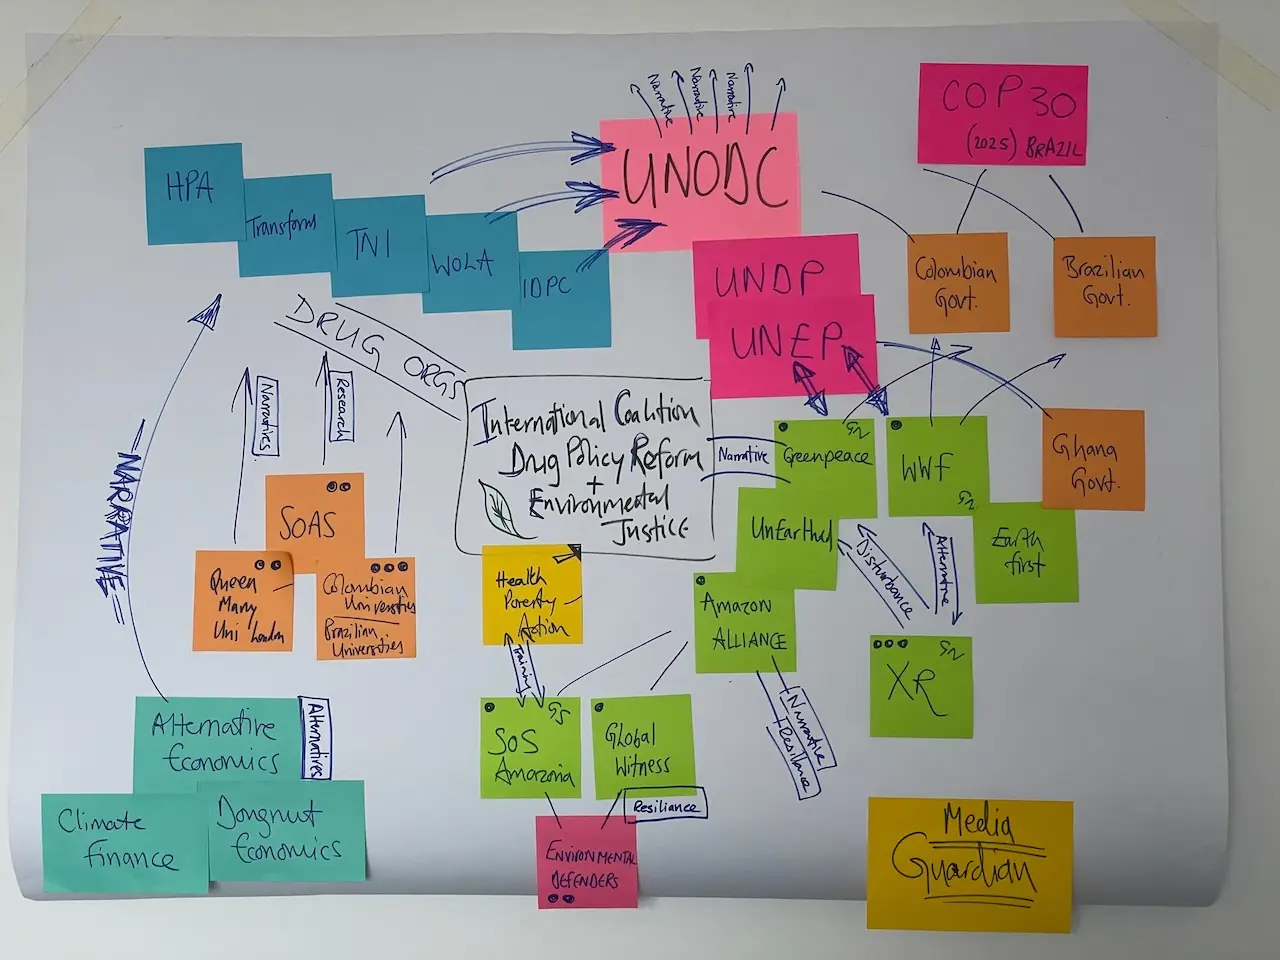 Narrative
Narrative
Narrative
COP30
(2025) BRAZIL
UNODC
HPA
Transform
TNI
WOLA
IDPC
UNDP
UNEP
Colombian
Govt.
Brazilian
Govt.
DRUG ORGS
Narratives
Research
International Coalition
Drug Policy Reform
+
Environmental
Justice
Narrative
Greenpeace
WWF
Ghana
Govt.
UnEarthed
Earth
first
Disturbance
Alternative
= NARRATIVE =
SOAS
Queen
Mary
Uni London
Colombian
Universities
Brazilian
Universities
Health
Poverty
Action
Training
Amazon
ALLIANCE
XR
Narrative
+ Resiliance
Alternative
Economics
Alternatives
SoS
Amazonia
Global
Witness
Resiliance
Climate
finance
Dongnut
Economics
ENVIRONMENTAL
DEFENDERS
Media
Guardian